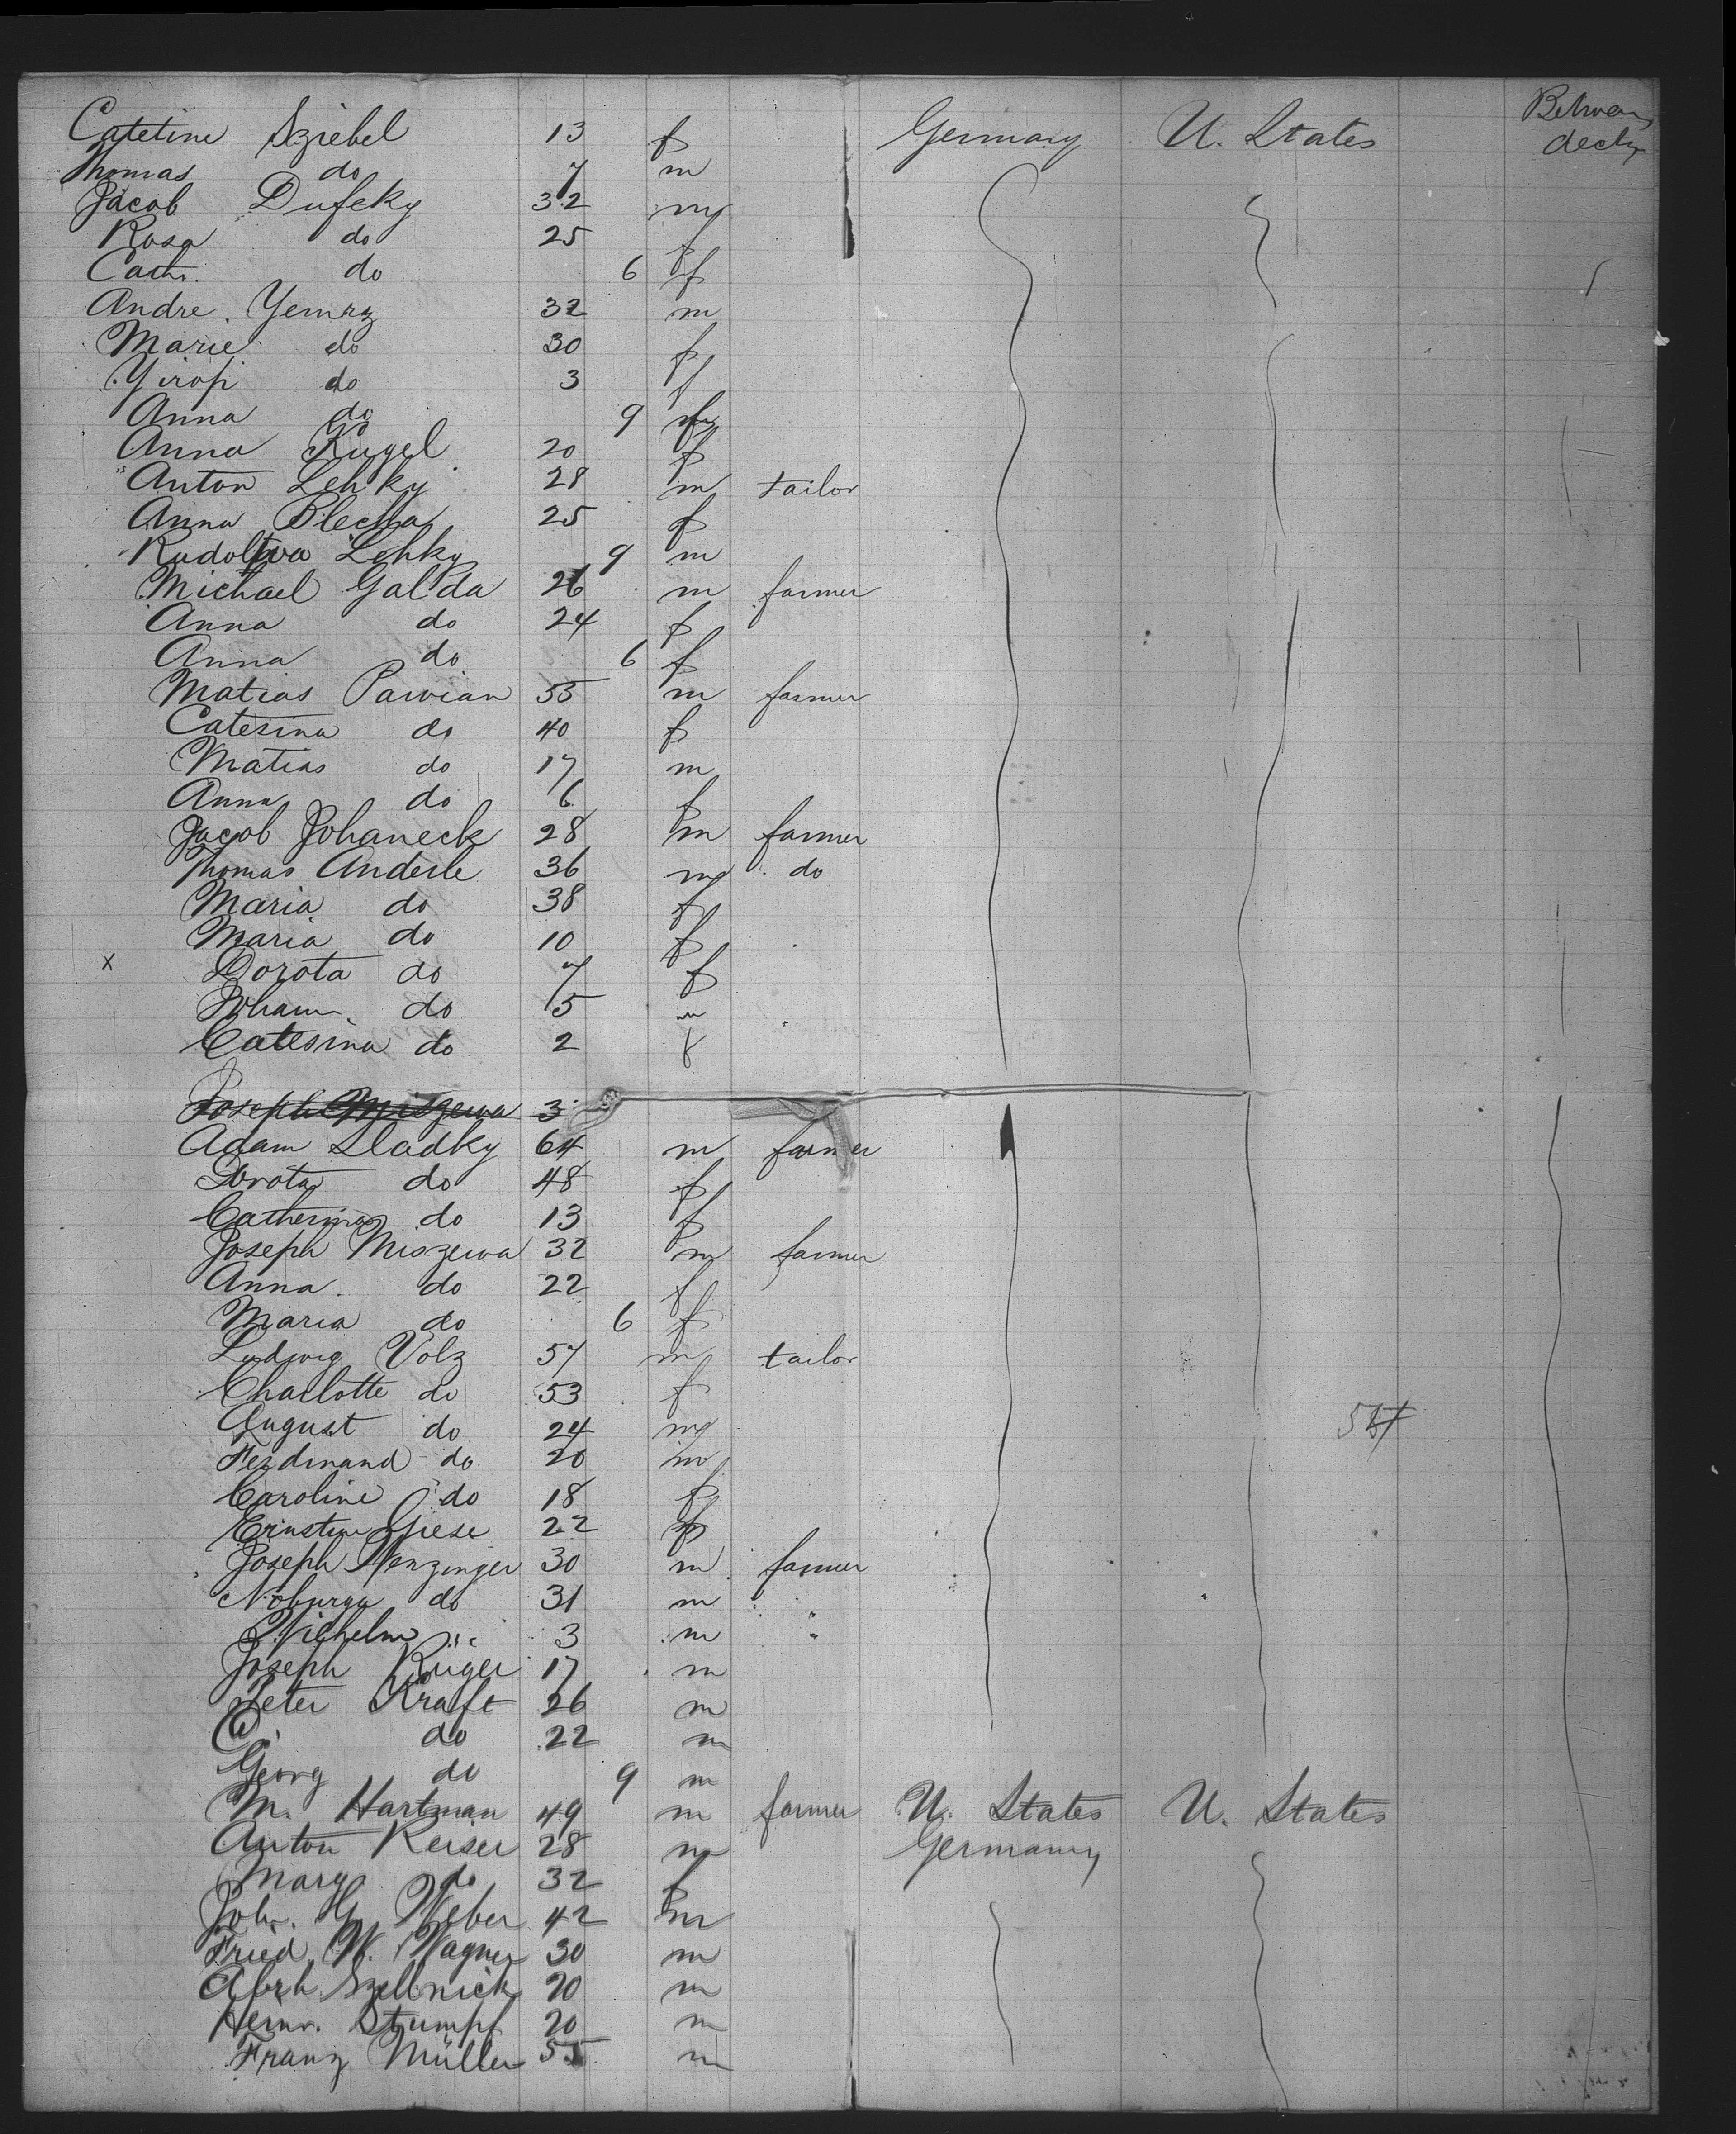 Catetine Sziebel 13 f Germany U. States Between decks
Thomas do 7 m
Jacob Dufcky 32 m
Rosa do 25 f
Cath. do 6 f
Andre. Yemaz 32 m
Marie do 30 f
Yirofi do 3 f
Anna do 9
Anna Kugel 20 f
Anton Lehky 28 m tailor
Anna Blecha 25 f
Lehky 9 m
Michael Galda 26 m farmer
Anna do 24 f
Anna do 6 f
Matias Parvian 55 m farmer
Catesina do 40 f
Matias do 17 m
Anna do 6 f
Jacob Johaneck 28 m farmer
Thomas Anderle 36 m do
Maria do 38 f
Maria do 10 f
x Dorota do 7 f
Johann. do 5 m
Catesina do 2 f
Joseph Miszewa 3
Adam Sladky 64 m farmer
Dorota do 48 f
Catherina do 13 f
Joseph Miszewa 32 m farmer
Anna. do 22 f
Maria do 6 f
Ludwig Volz 57 m tailor
Charlotte do 53 f
August do 24 m
Ferdinand do 20 m
Caroline do 18 f
Ernstine Giese 22 f
Joseph Wenzinger 30 m farmer
Noburga do 31 m
Wilhelm " 3 m "
Joseph Kuger 17 m
Peter Kraft 26 m
do 22 m
Georg do 9 m
M. Hartman 49 m farmer U. States U. States
Anton Reiser 28 m Germany
Marg. do 32 f
Joh. G. Weber 42 m
Fried. W. Wagner 30 m
Abrh. Szellnick 20 m
Heinr. Stumpf 20 m
Franz Müller 55 m